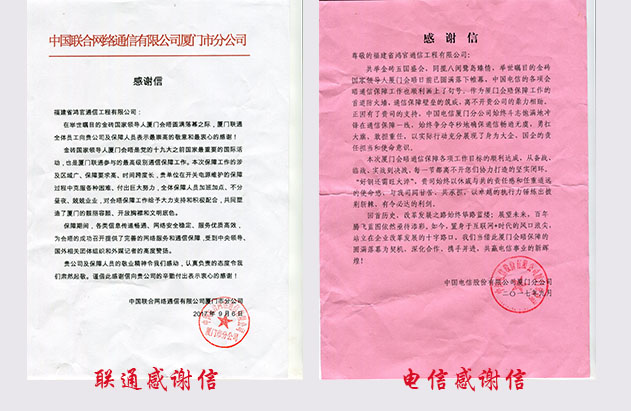 中国联合网络通信有限公司厦门市分公司
感谢信
福建省鸿官通信工程有限公司：
在举世瞩目的金砖国家领导人厦门会晤圆满落幕之际，厦门联通
全体员工向贵公司及保障人员表示最崇高的敬意和最衷心的感谢！
金砖国家领导人厦门会晤是党的十九大之前国家最重要的国际活
动，也是厦门联通参与的最高级别通信保障工作。本次保障工作的涉
及区域广、保障要求高、时间跨度长，贵单位在开关电源维护的保障
过程中克服各种困难，付出巨大努力，全体保障人员加班加点，不分
昼夜、兢兢业业，对会晤保障工作给予大力支持和积极配合，共同塑
造了厦门的靓丽容颜、开放胸襟和文明底色。
保障期间，各类信息传递畅通、网络安全稳定、服务优质高效，
为会晤的成功召开提供了完善的网络服务和通信保障，受到中央领导、
国外相关团体组织和外媒记者的高度赞扬。
贵公司及保障人员的敬业精神令我们感动，认真负责的态度令我
们肃然起敬。谨借此感谢信向贵公司的辛勤付出表示衷心的感谢！
中国联合网络通信有限公司厦门市分公司
2017年9月6日
联通感谢信
感谢信
尊敬的福建省鸿官通信工程有限公司：
共举金砖五国盛会，同展八闽鹭岛臻情，举世瞩目的金砖
国家领导人厦门会晤日前已圆满落下帷幕，中国电信的各项会
晤通信保障工作也顺利画上了句号。作为厦门会晤保障工作的
首道防火墙，通信保障壁垒的筑成，离不开贵公司的鼎力相助。
正因有了贵司的支持，中国电信厦门分公司始终斗志饱满地冲
锋在通信保障一线，始终争分夺秒地确保通信畅通无虞，勇扛
大旗，敢担重任，以实际行动充分展现了身为大企、国企的责
任担当和使命意识。
本次厦门会晤通信保障各项工作目标的顺利达成，从备战、
临战、实战到决战，每一节都离不开您们协力打造的坚实闭环。
“好钢还需旺火淬”，贵司始终以休戚与共的责任感和任重道远
的使命感，与我司同甘苦、共承担，以卓越的执行力锤炼出披
荆斩棘、有令必达的利剑。
回首历史，改革发展之路始终筚路蓝缕；展望未来，百年
腾飞蓝图依然亟待添彩。如今，置身于互联网+时代的风口浪尖，
站立在企业改革发展的十字路口，我们当借此厦门会晤保障的
圆满落幕为契机，深化合作、携手并进，共赢电信事业的新辉
煌！
中国电信股份有限公司厦门分公司
二〇一七年九月
电信感谢信